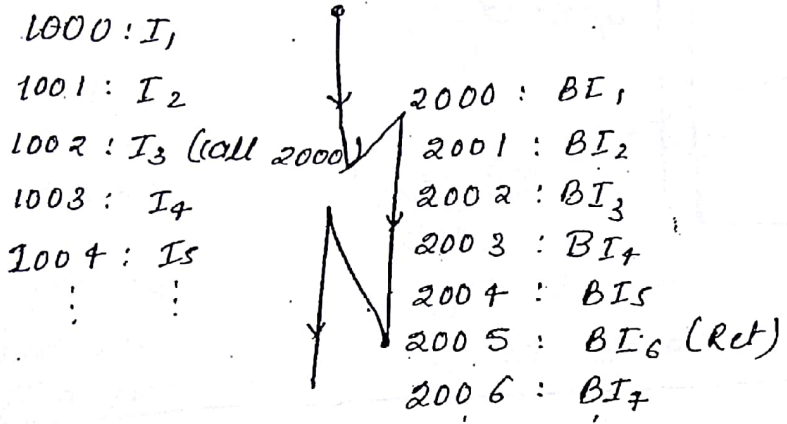 1000 : I1
1001 : I2
1002 : I3 (call 2000)
1003 : I4
1004 : I5
⋮ ⋮
2000 : BI1
2001 : BI2
2002 : BI3
2003 : BI4
2004 : BI5
2005 : BI6 (Ret)
2006 : BI7